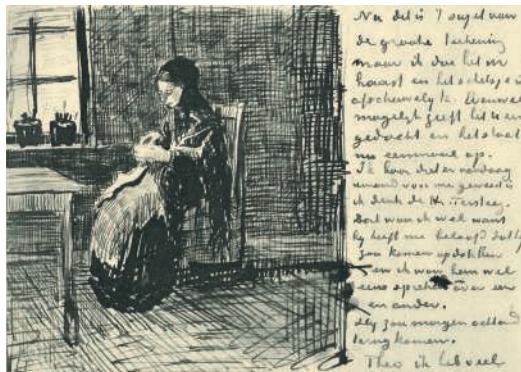 Nu dit is 't sujet van
de groote teekening
maar ik doe het in
haast en het schetsje is
afschuwelyk.
mogelyk geeft het u een
gedacht en het staat
nu eenmaal op.
Ik hoor dat er vandaag
iemand voor me geweest is
ik denk de Hr Tersteeg.
Dat wou ik wel want
hy heeft me beloofd dat hy
zou komen
en ik wou hem wel
eens spreken over een
en ander.
Hy zou morgen ochtend
terug komen.
Theo ik heb veel